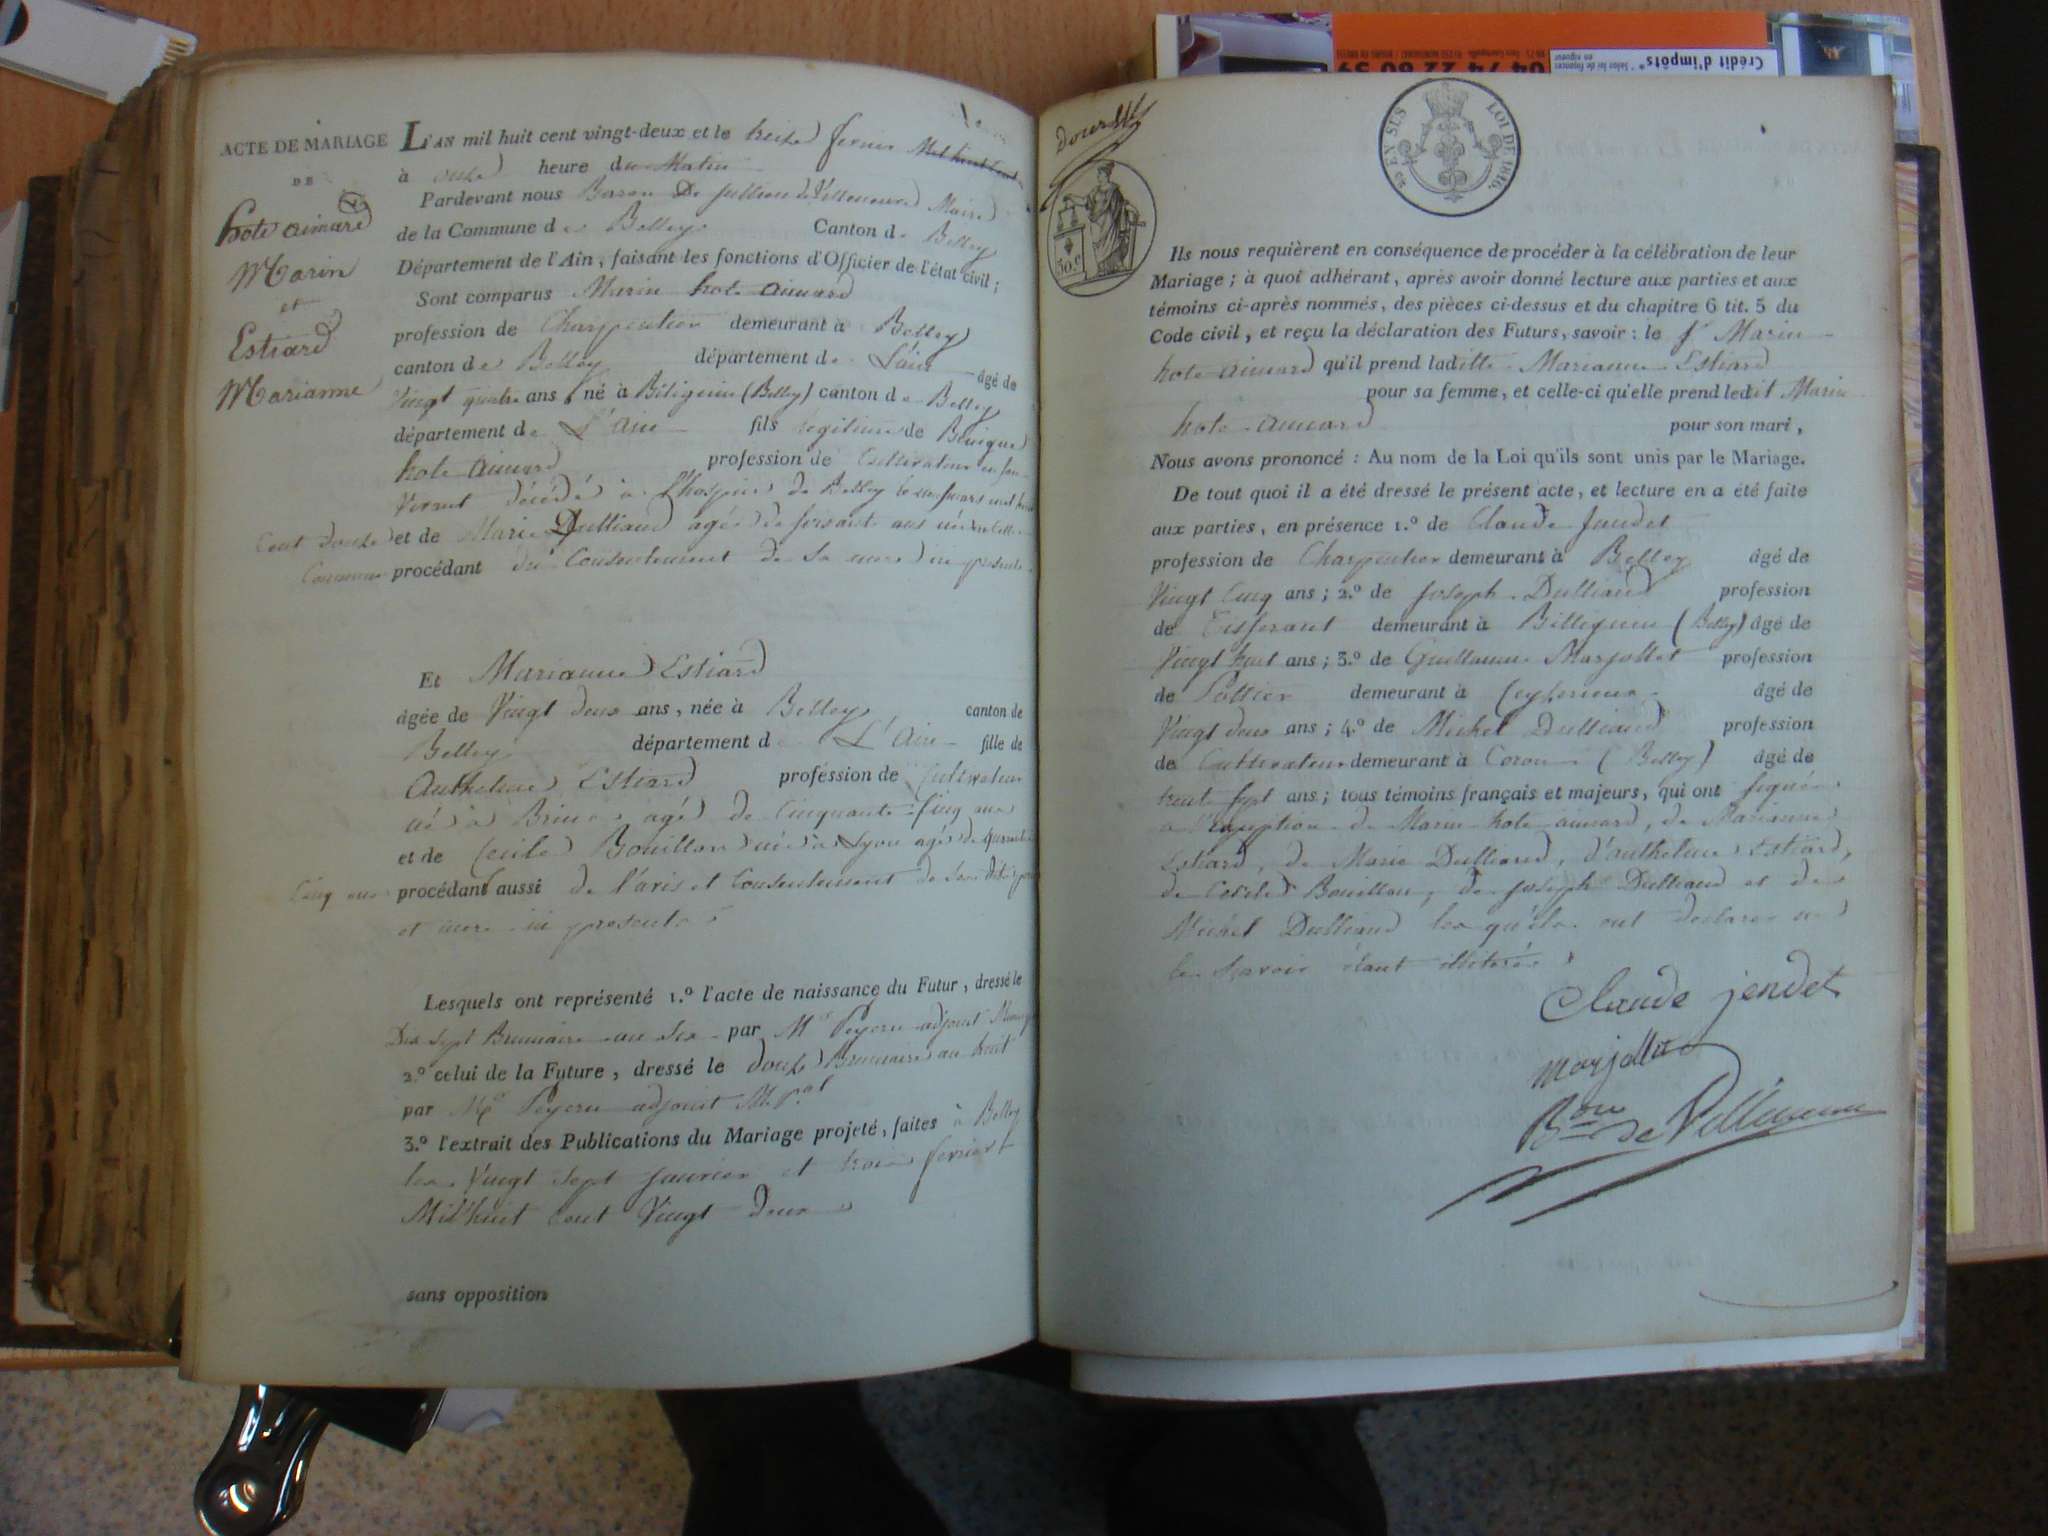 Crédit d'impôts*
04 74 22 80 59
ACTE DE MARIAGE
DE
hote aimard
Marin
et
Estiard
Marianne
L'AN mil huit cent vingt-deux et le treize fevrier
à onze heure du Matin
Pardevant nous Baron De Jullien de Villeneuve Maire
de la Commune de Belley Canton de Belley
Département de l'Ain, faisant les fonctions d'Officier de l'état civil;
Sont comparus Marin hote aimard
profession de Charpentier demeurant à Belley
canton de Belley département de L'ain âgé de
Vingt quatre ans, né à Billignin (Belley) canton de Belley
département de L'Ain fils legitime de Benigne
hote aimard profession de Cultivateur en son
Vivant décédé à l'hospice de Belley le mars mil huit
Cent douze et de Marie Dulliand agée de soixante ans née en cette
Commune procédant du Consentement de sa mere ici presente
Et Marianne Estiard
âgée de Vingt deux ans, née à Belley canton de
Belley département de L'Ain fille de
Anthelme Estiard profession de Cultivateur
né à Brens agé de Cinquante Cinq ans
et de Cecile Bouillon née à Lyon agée de quarante
Cinq ans procédant aussi de l'avis et Consentement de ses dits pere
et mere ici presents
Lesquels ont représenté 1.º l'acte de naissance du Futur, dressé le
Dix Sept Brumaire an Six par Mr Peyeru adjoint Municipal
2.º celui de la Future, dressé le douze Brumaire an huit
par Mr Peyeru adjoint M.pal
3.º l'extrait des Publications du Mariage projeté, faites à Belley
les Vingt Sept janvier et trois fevrier
Mil huit Cent Vingt deux
sans opposition
EN SUS
LOI DE 1816.
50.c
Ils nous requièrent en conséquence de procéder à la célébration de leur
Mariage; à quoi adhérant, après avoir donné lecture aux parties et aux
témoins ci-après nommés, des pièces ci-dessus et du chapitre 6 tit. 5 du
Code civil, et reçu la déclaration des Futurs, savoir: le sr Marin
hote aimard qu'il prend ladite Marianne Estiard
pour sa femme, et celle-ci qu'elle prend ledit Marin
hote aimard pour son mari,
Nous avons prononcé: Au nom de la Loi qu'ils sont unis par le Mariage.
De tout quoi il a été dressé le présent acte, et lecture en a été faite
aux parties, en présence 1.º de Claude Jendet
profession de Charpentier demeurant à Belley âgé de
Vingt Cinq ans; 2.º de Joseph Dulliand profession
de Tisserant demeurant à Billignin (Belley) âgé de
Vingt huit ans; 3.º de Guillaume Marjollet profession
de Pottier demeurant à Ceyserieux âgé de
Vingt deux ans; 4.º de Michel Dulliand profession
de Cultivateur demeurant à Coron (Belley) âgé de
trente Sept ans; tous témoins français et majeurs, qui ont signé
a l'exception de Marin hote aimard, de Marianne
Estiard, de Marie Dulliand, d'anthelme Estiard,
de Cecile Bouillon, de joseph Dulliand et de
Michel Dulliand lesquels ont declaré ne
le Savoir étant illiterés
Claude jendet
marjollet
Bon de Villeneuve